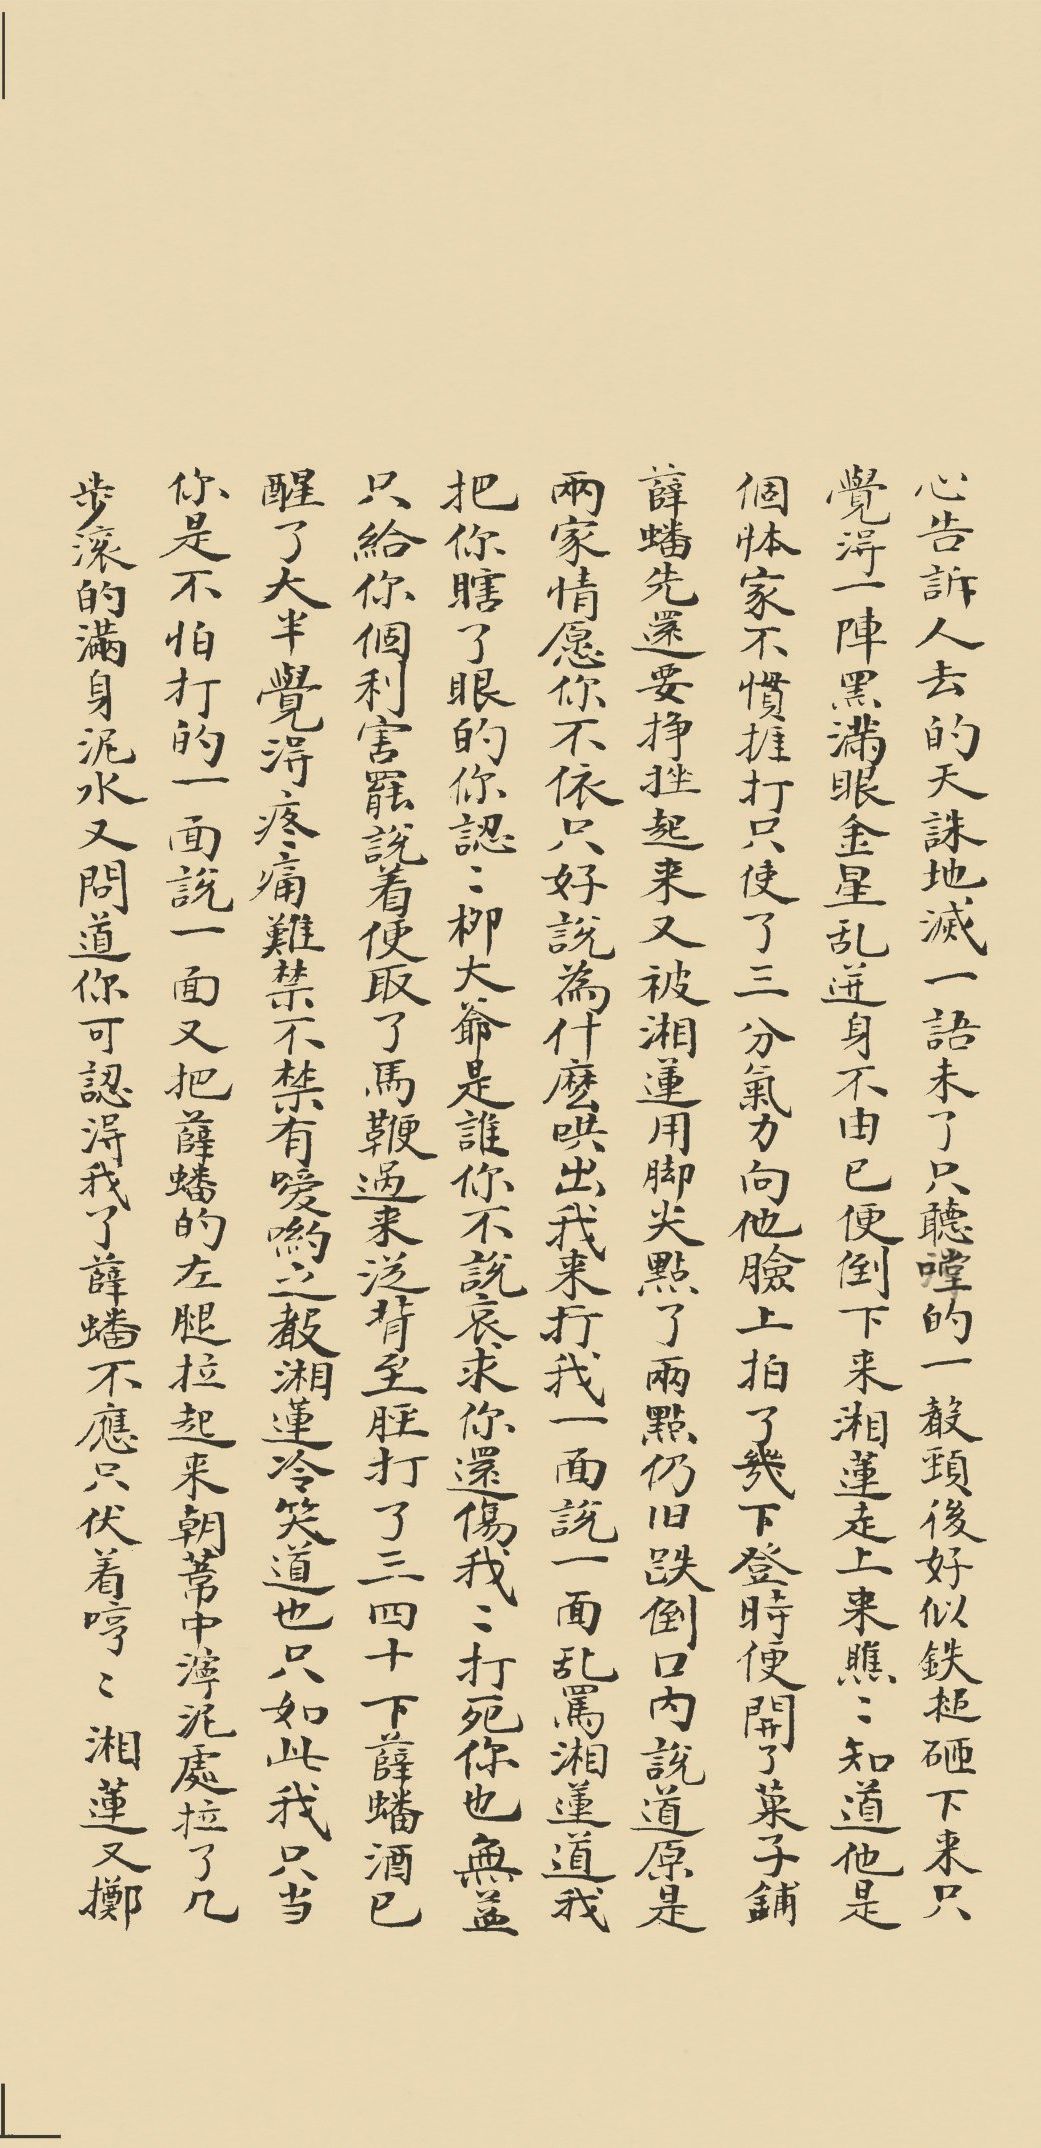 心告訴人去的天誅地滅一語未了只聽嘡的一聲頸後好似鉄搥砸下来只
覺淂一陣黑滿眼金星乱迸身不由已便倒下来湘蓮走上来瞧〻知道他是
個体家不慣捱打只使了三分氣力向他臉上拍了幾下登時便開了菓子鋪
薛蟠先還要挣挫起来又被湘蓮用脚尖點了兩點仍旧跌倒口内說道原是
兩家情愿你不依只好說為什麽哄出我来打我一面說一面乱罵湘蓮道我
把你瞎了眼的你認〻柳大爺是誰你不說哀求你還傷我〻打死你也無益
只給你個利害罷說着便取了馬鞭過来泛背至脛打了三四十下薛蟠酒已
醒了大半覺淂疼痛難禁不禁有噯喲之聲湘蓮冷笑道也只如此我只当
你是不怕打的一面說一面又把薛蟠的左腿拉起来朝葦中濘泥處拉了几
步滚的滿身泥水又問道你可認淂我了薛蟠不應只伏着哼〻湘蓮又擲